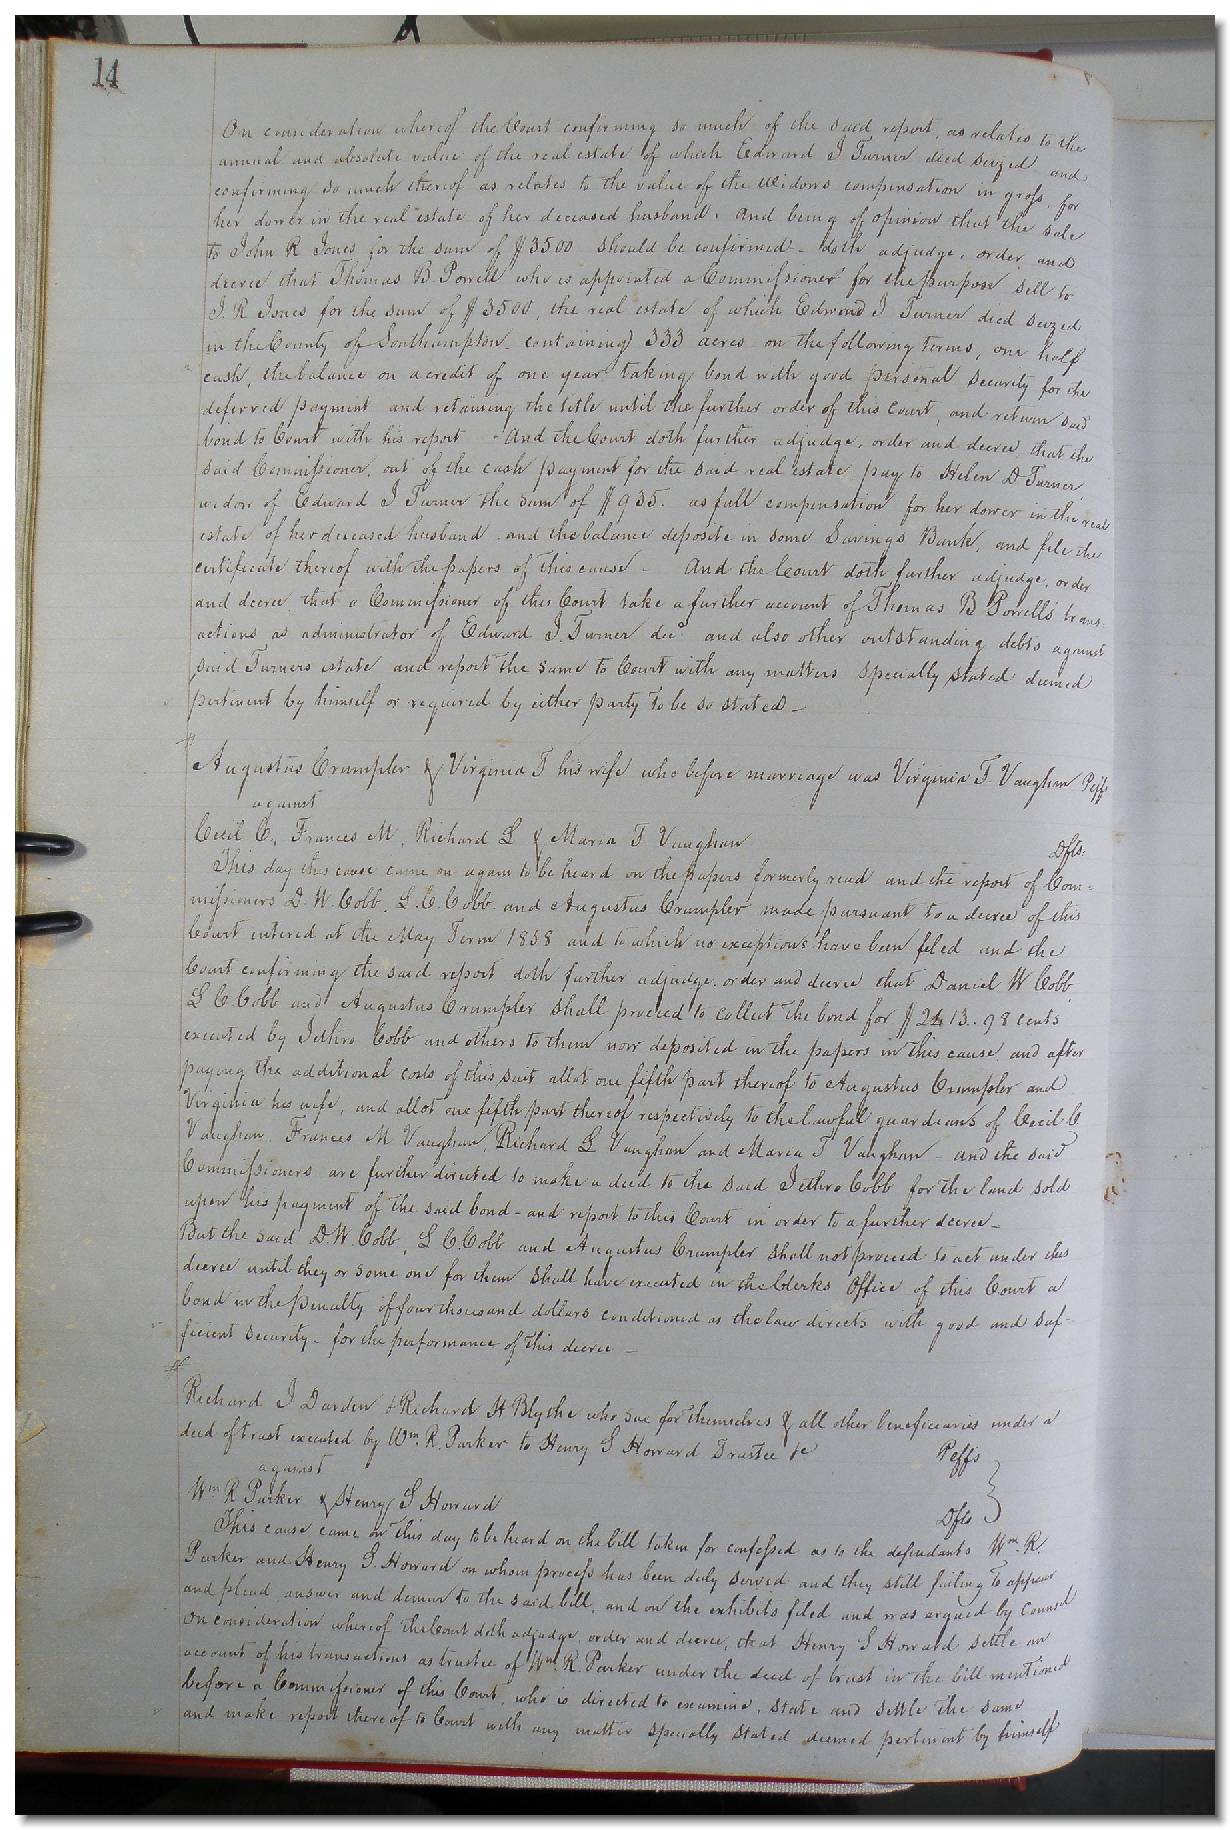 14
On consideration whereof the Court confirming so much of the said report, as relates to the
annual and absolute value of the real estate of which Edward J Turner died seized and
confirming so much thereof as relates to the value of the widows compensation in gross for
her dower in the real estate of her deceased husband. And being of opinion that the sale
to John R Jones for the sum of $3500 should be confirmed - doth adjudge, order and
decree that Thomas B. Powell who is appointed a Commissioner for the purpose sell to
J. R Jones for the sum of $3500, the real estate of which Edward J Turner died seized
in the County of Southampton containing 333 acres on the following terms, one half
cash, the balance on a credit of one year taking bond with good personal security for the
deferred payment and retaining the title until the further order of this Court, and return said
bond to Court with his report - And the Court doth further adjudge, order and decree that the
said Commissioner, out of the cash payment for the said real estate pay to Helen D Turner
widow of Edward J Turner the sum of $935. as full compensation for her dower in the real
estate of her deceased husband and the balance deposite in some Savings Bank, and file the
certificate thereof with the papers of this cause - And the Court doth further adjudge, order
and decree that a Commissioner of this Court take a further account of Thomas B Powells trans-
actions as administrator of Edward J. Turner decd and also other outstanding debts against
said Turners estate and report the same to Court with any matters specially stated deemed
pertinent by himself or required by either party to be so stated -
Augustus Crumpler & Virginia T his wife who before marriage was Virginia T Vaughan Peffs
against
Cecil C, Frances M, Richard L & Maria T Vaughan
Dfts.
This day this cause came on again to be heard on the papers formerly read and the report of Com=
missioners D. W. Cobb, L. C. Cobb and Augustus Crumpler made pursuant to a decree of this
Court entered at the May Term 1858 and to which no exceptions have been filed and the
Court confirming the said report doth further adjudge, order and decree that Daniel W Cobb
L C Cobb and Augustus Crumpler shall proceed to collect the bond for $2413.98 cents
executed by Jethro Cobb and others to them now deposited in the papers in this cause and after
paying the additional costs of this suit allot one fifth part thereof to Augustus Crumpler and
Virginia his wife, and allot one fifth part thereof respectively to the lawful guardians of Cecil C
Vaughan, Frances M Vaughan, Richard L Vaughan and Maria T Vaughan - and the said
Commissioners are further directed to make a deed to the said Jethro Cobb for the land sold
upon his payment of the said bond - and report to this Court in order to a further decree -
But the said D. W. Cobb, L C. Cobb and Augustus Crumpler shall not proceed to act under this
decree until they or some one for them shall have executed in the Clerks Office of this Court a
bond in the penalty of four thousand dollars conditioned as the law directs with good and suf-
ficient security - for the performance of this decree -
Richard J Darden & Richard H Blythe who sue for themselves & all other beneficiaries under a
deed of trust executed by Wm. R. Parker to Henry S Howard Trustee &c
Peffs
against
Wm R Parker & Henry S Howard
Dfts
This cause came on this day to be heard on the bill taken for confessed as to the defendants Wm. R.
Parker and Henry S. Howard on whom process has been duly served and they still failing to appear
and plead answer and demur to the said bill, and on the exhibits filed and was argued by Counsel
On consideration whereof the Court doth adjudge, order and decree, that Henry S Howard settle an
account of his transactions as trustee of Wm. R. Parker under the deed of trust in the bill mentioned
before a Commissioner of this Court, who is directed to examine, state and settle the same
and make report thereof to Court with any matter specially stated deemed pertinent by himself